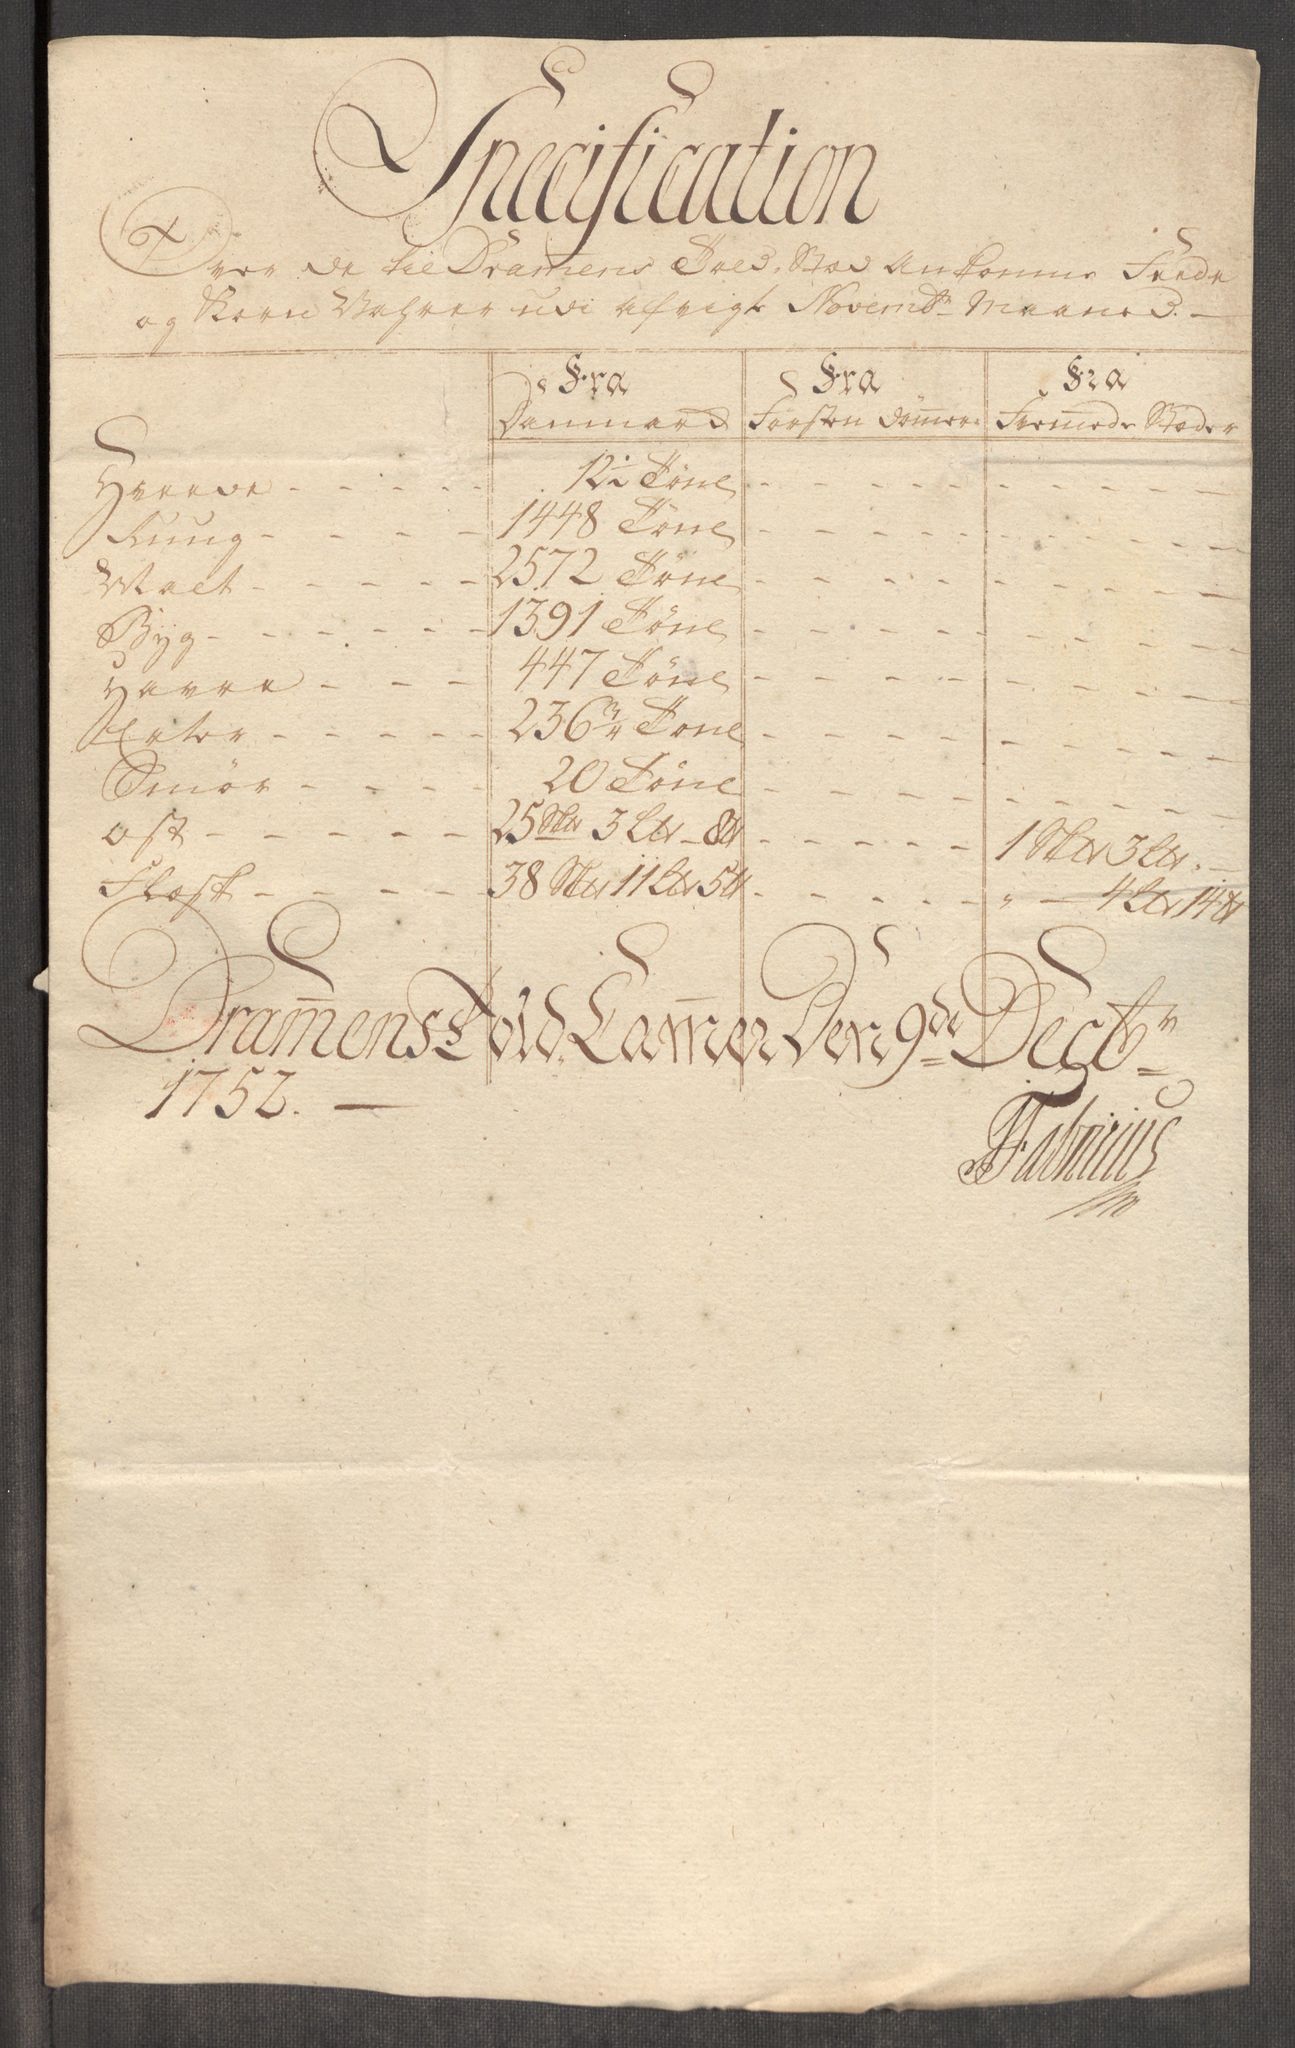 Specification
Over de til Dramens Told Stæd Ankomne Feede
og Korn Vahrer udi afvigte Novembr Maaned.
Fra Fra Fra
Danmark Førsten dömmene Fremmede Stæder
Hveede - - - - - 12½ Tönr - - - - - - - - - -
Ruug - - - - 1448 Tönr - - - - - - - - - -
Malt - - - - - 2572 Tönr - - - - - - - - - -
Byg - - - - - - 1391 Tönr - - - - - - - - - -
Havre - - - 447 Tönr - - - - - - - - - -
Erter - - - - - 236¾ Tönr - - - - - - - - - -
Smör - - - - 20 Töne - - - - - - - - - -
Ost - - - - - 25 Sk℔ 3 L℔ - 8℔ - - - - - 1 Sk℔ 3 L℔ . -
Flesk - - - - - 38 Sk℔ 11 L℔ 5℔ - - - - - " - 4 L℔ 14℔
Dramens Told Cammer Den 9de Decbr
1752. —
Fabricius